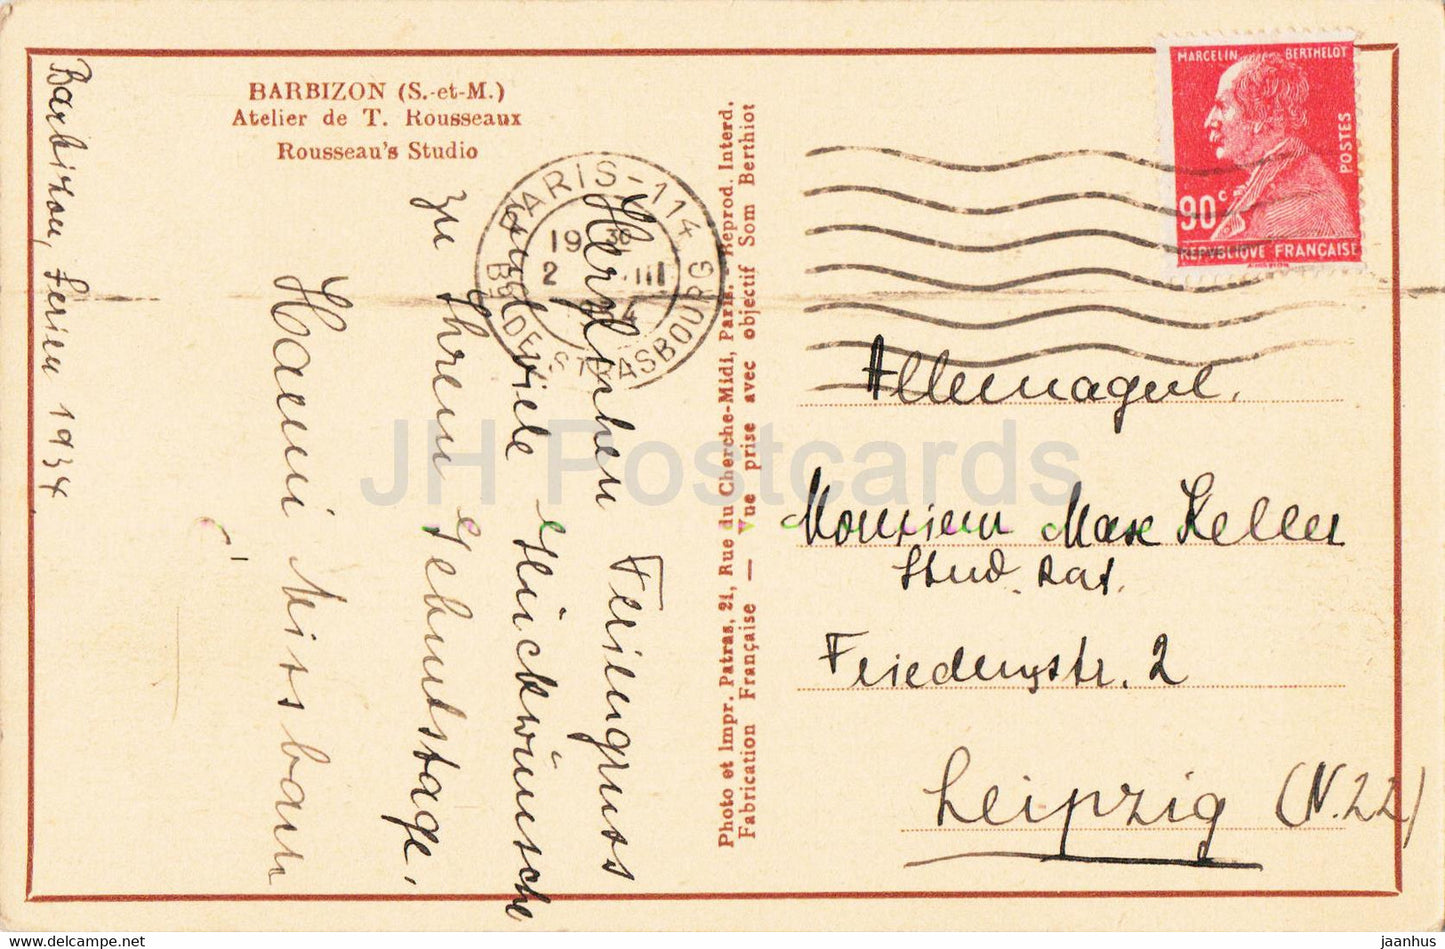 BARBIZON (S.-et-M.)
Atelier de T. Rousseaux
Rousseau's Studio
Barbizon, Ferien 1934
Herzlichen Feriengruss
und viele Glückwünsche
zu Ihrem Geburtstage.
Hanni Missbach
PARIS-114
BD DE STRASBOURG
19 30
2 III
Photo et Impr. Patras, 21, Rue du Cherche-Midi, Paris. Reprod. Interd.
Fabrication Française — Vue prise avec objectif Som Berthiot
MARCELIN BERTHELOT
POSTES
90c
REPUBLIQUE FRANÇAISE
Allemagne.
Monsieur Max Keller
Stud. rat.
Friedensstr. 2
Leipzig (N.22)
JH Postcards
jaanhus.com